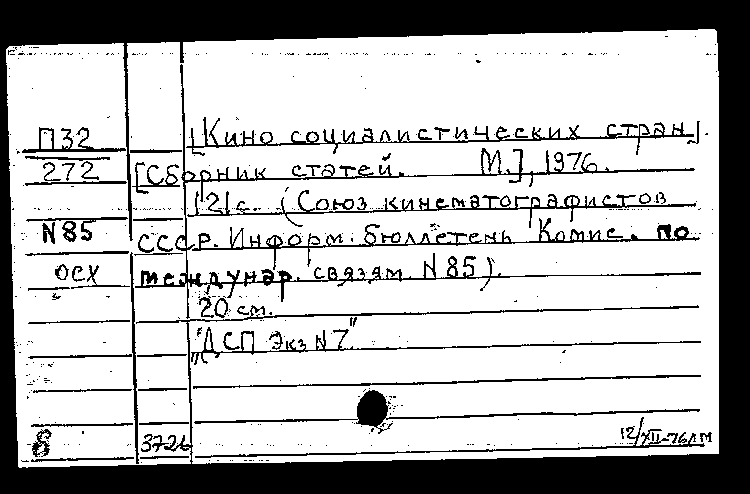 П32 [Кино социалистических стран].
272 [Сборник статей. М.], 1976.
121с. (Союз кинематографистов
N85 СССР. Информ. бюллетень Комис. по
осх междунар. связям N85).
20 см.
"ДСП Экз N7"
8 3726 12/XII-76